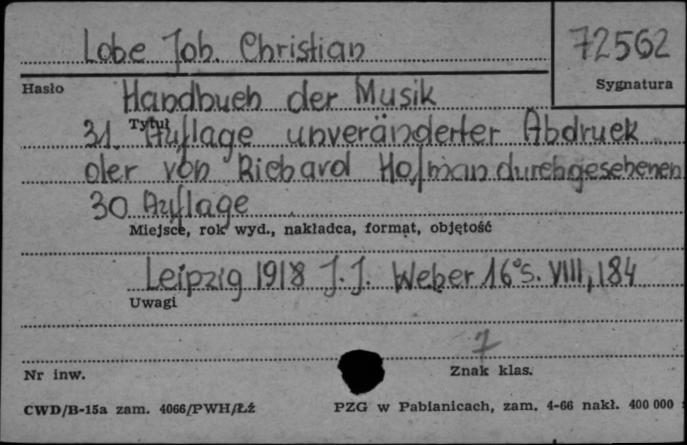 Lobe Joh. Christian
72562
Hasło
Sygnatura
Handbuch der Musik
Tytuł
31. Auflage unveränderter Abdruck
der von Richard Hofman durchgesehenen
30 Auflage
Miejsce, rok wyd., nakładca, format, objętość
Leipzig 1918 J. J. Weber 16° s. VIII, 184
Uwagi
7
Nr inw.
Znak klas.
CWD/B-15a zam. 4066/PWH/Łź
PZG w Pabianicach, zam. 4-66 nakł. 400 000